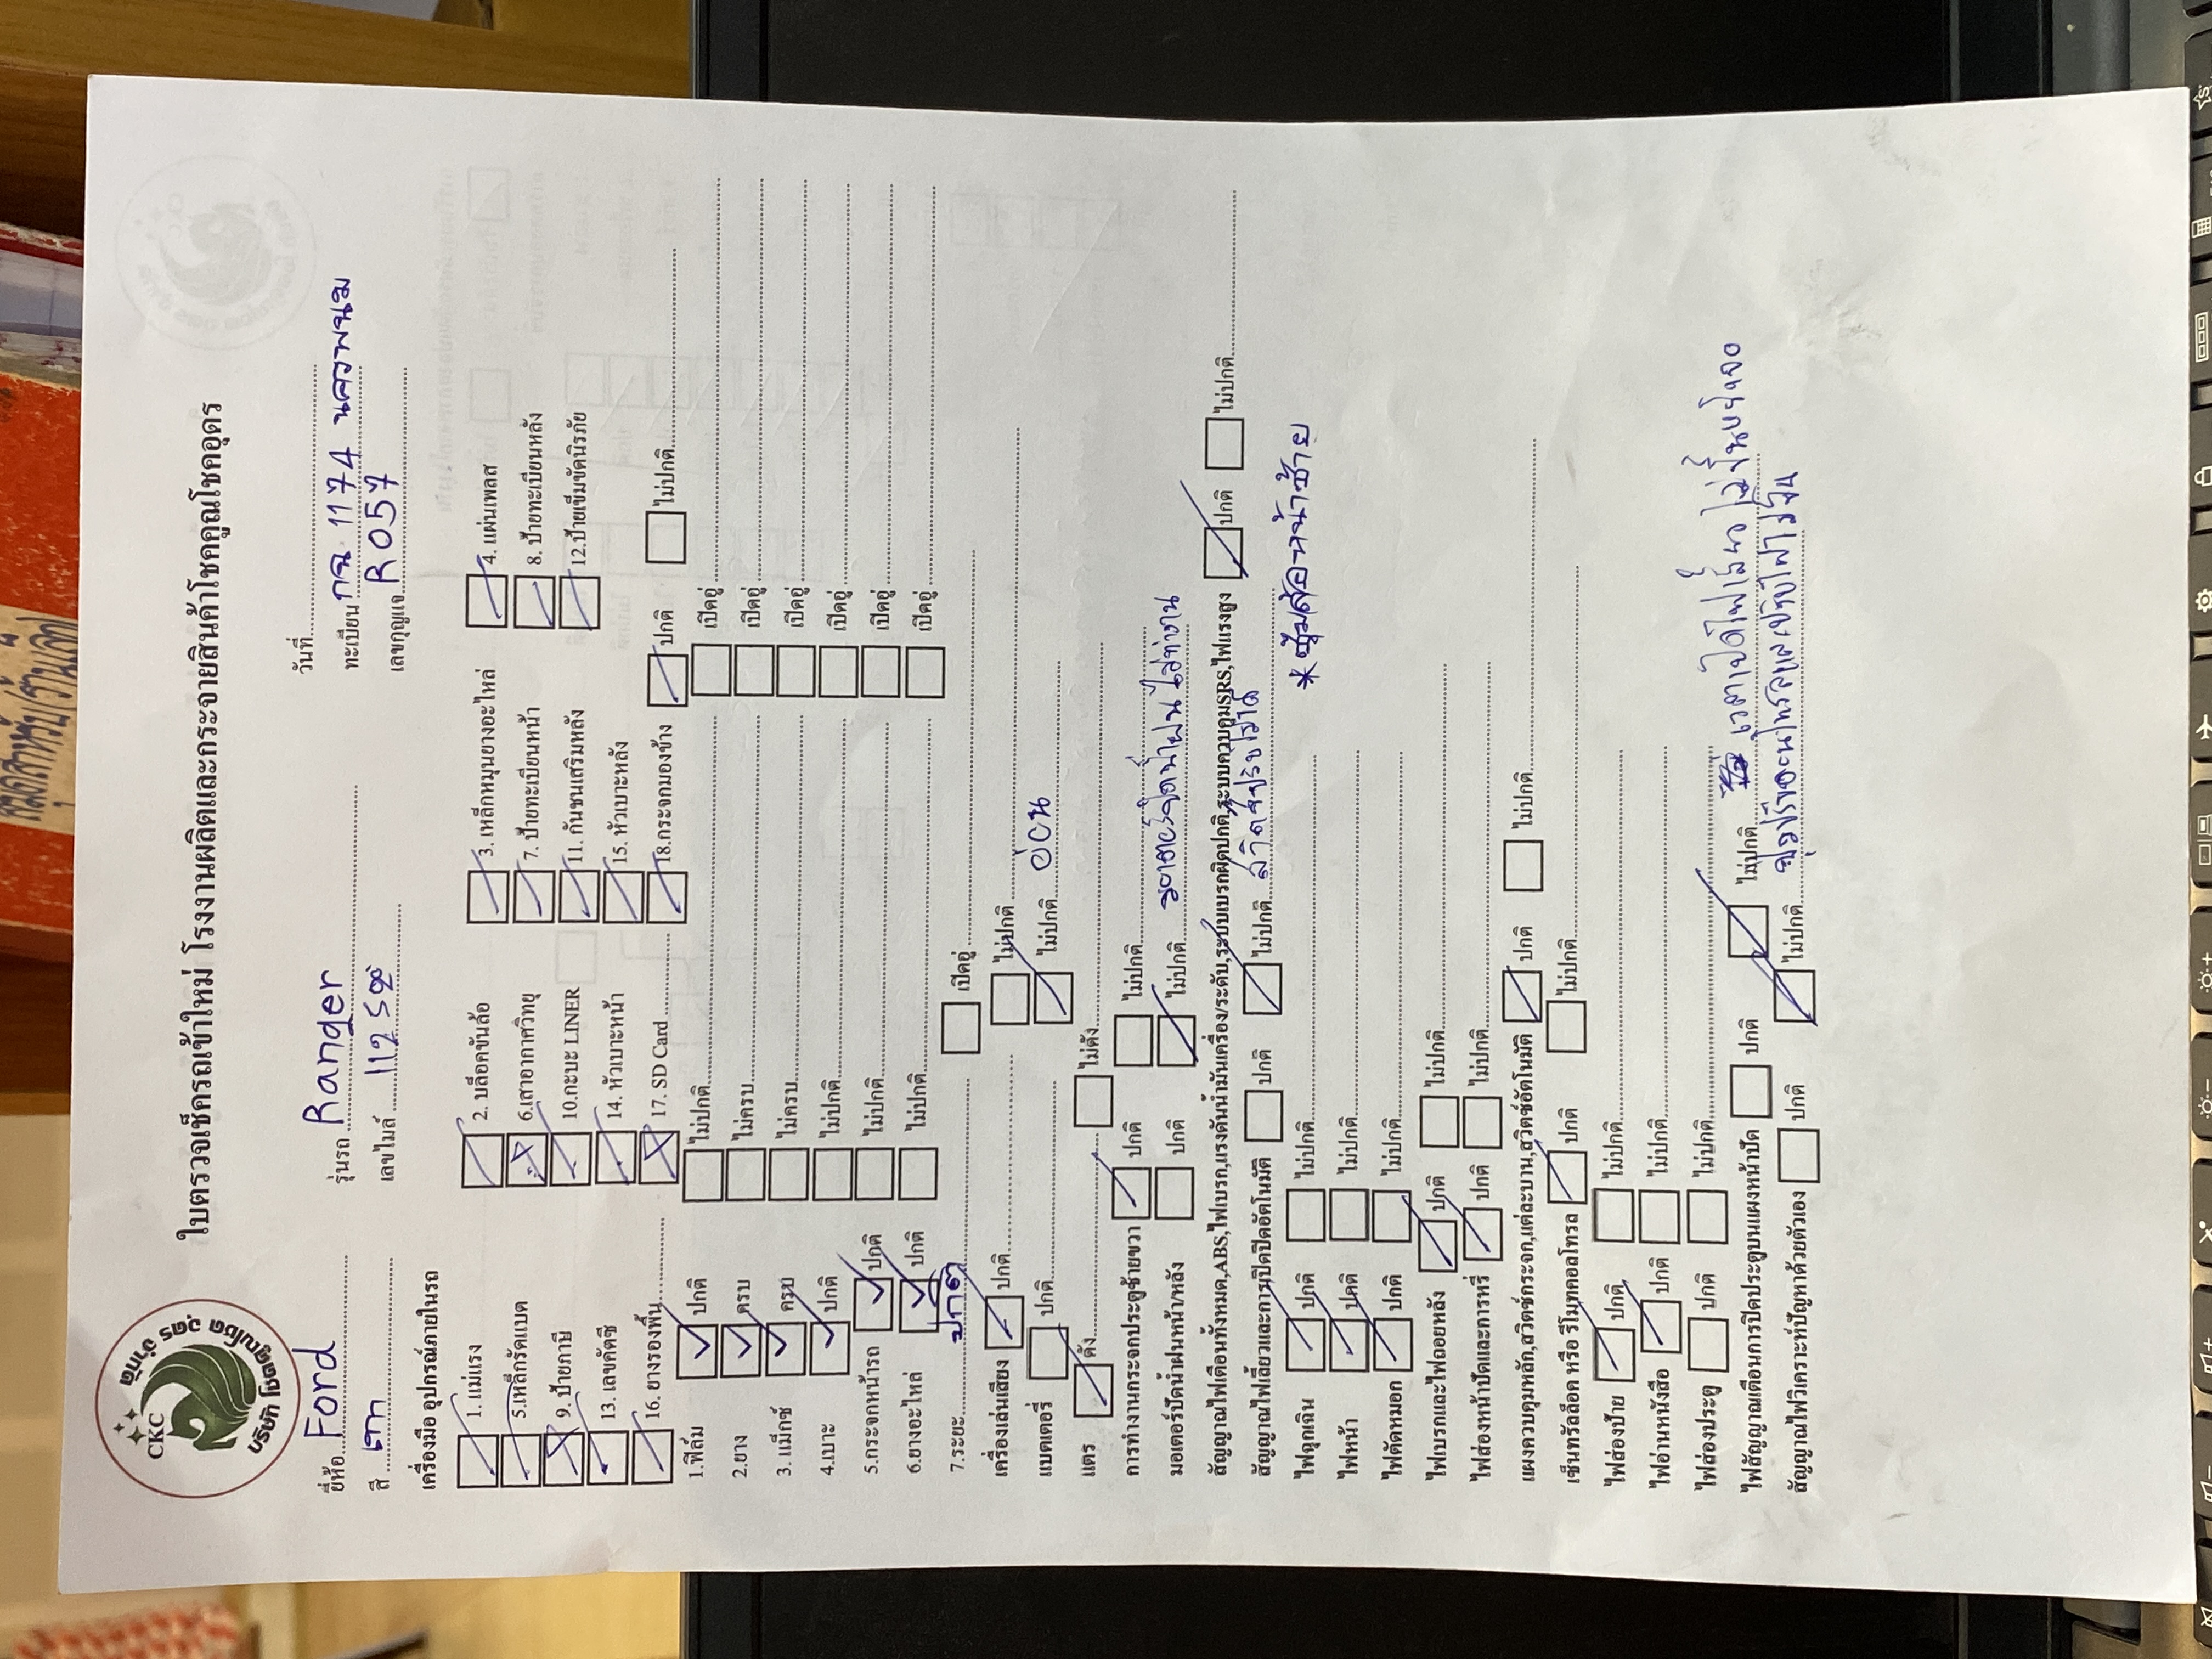 ใบตรวจเช็ครถเข้าใหม่ โรงงานผลิตและกระจายสินค้าโชคคูณโชคอุดร
CKC
บริษัท โชคคูณโชค อุดร จำกัด
วันที่
ยี่ห้อ Ford รุ่นรถ Ranger ทะเบียน 1174 นครพนม
สี เทา เลขไมล์ เลขกุญแจ R057
เครื่องมือ อุปกรณ์ภายในรถ
1.แม่แรง 2. บล็อคขันล้อ 3. เหล็กหมุนยางอะไหล่ 4. แผ่นเพลส
5.เหล็กรัดแบต 6.เสาอากาศวิทยุ 7. ป้ายทะเบียนหน้า 8. ป้ายทะเบียนหลัง
9. ป้ายภาษี 10.กะบะ LINER 11. กันชนเสริมหลัง 12.ป้ายเข็มขัดนิรภัย
13. เลขคัตซี 14. หัวเบาะหน้า 15. หัวเบาะหลัง
16. ยางรองพื้น 17. SD Card 18.กระจกมองข้าง ปกติ ไม่ปกติ
1.ฟิล์ม ปกติ ไม่ปกติ เบิดอู่
2.ยาง ครบ ไม่ครบ เบิดอู่
3. แม็กซ์ ครบ ไม่ครบ เบิดอู่
4.เบาะ ปกติ ไม่ปกติ เบิดอู่
5.กระจกหน้ารถ ปกติ ไม่ปกติ เบิดอู่
6.ยางอะไหล่ ปกติ ไม่ปกติ เบิดอู่
7.ระยะ ปกติ เบิดอู่
เครื่องเล่นเสียง ปกติ ไม่ปกติ
แบตเตอรี่ ปกติ ไม่ปกติ อ่อน
แตร ดัง ไม่ดัง
การทำงานกระจกประตูซ้ายขวา ปกติ ไม่ปกติ
มอเตอร์ปัดน้ำฝนหน้า/หลัง ปกติ ไม่ปกติ มอเตอร์ฉีดน้ำฝนไม่ทำงาน
สัญญาณไฟเตือนทั้งหมด,ABS,ไฟเบรก,แรงดันน้ำมันเครื่อง/ระดับ,ระบบเบรกผิดปกติ,ระบบควบคุมSRS,ไฟแรงสูง ปกติ ไม่ปกติ
สัญญาณไฟเลี้ยวและการเปิดปิดอัตโนมัติ ปกติ ไม่ปกติ
ไฟฉุกเฉิน ปกติ ไม่ปกติ * ซุ้มล้อหน้าซ้าย
ไฟหน้า ปกติ ไม่ปกติ
ไฟตัดหมอก ปกติ ไม่ปกติ
ไฟเบรกและไฟถอยหลัง ปกติ ไม่ปกติ
ไฟส่องหน้าปัดและการหรี่ ปกติ ไม่ปกติ
แผงควบคุมหลัก,สวิตซ์กระจก,แต่ละบาน,สวิตซ์อัตโนมัติ ปกติ ไม่ปกติ
เซ็นทรัลล็อค หรือ รีโมทคอลโทรล ปกติ ไม่ปกติ
ไฟส่องป้าย ปกติ ไม่ปกติ
ไฟอ่านหนังสือ ปกติ ไม่ปกติ
ไฟส่องประตู ปกติ ไม่ปกติ
ไฟสัญญาณเตือนการปิดประตูบนแผงหน้าปัด ปกติ ไม่ปกติ
สัญญาณไฟวิเคราะห์ปัญหาด้วยตัวเอง ปกติ ไม่ปกติ